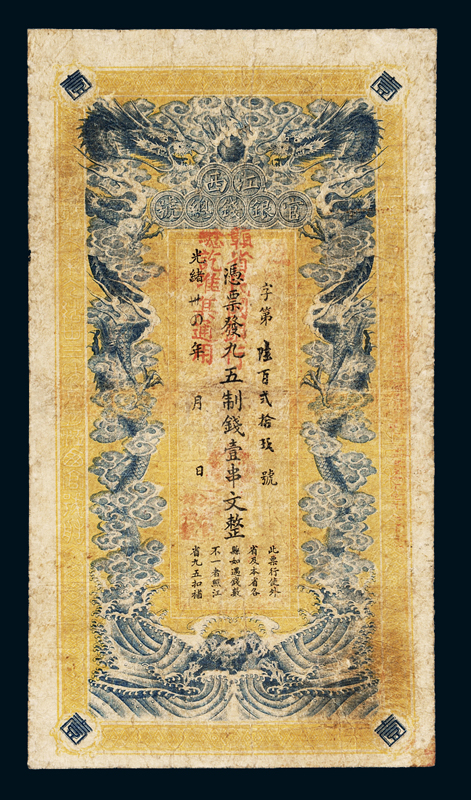 壹
壹
江西
官銀錢總號
字第陸百貳拾玖號
憑票發九五制錢壹串文整
光緒卅四年 月 日
此票行徒外
省及本省各
縣如遇錢數
不一者照江
省九五扣楮
壹
壹